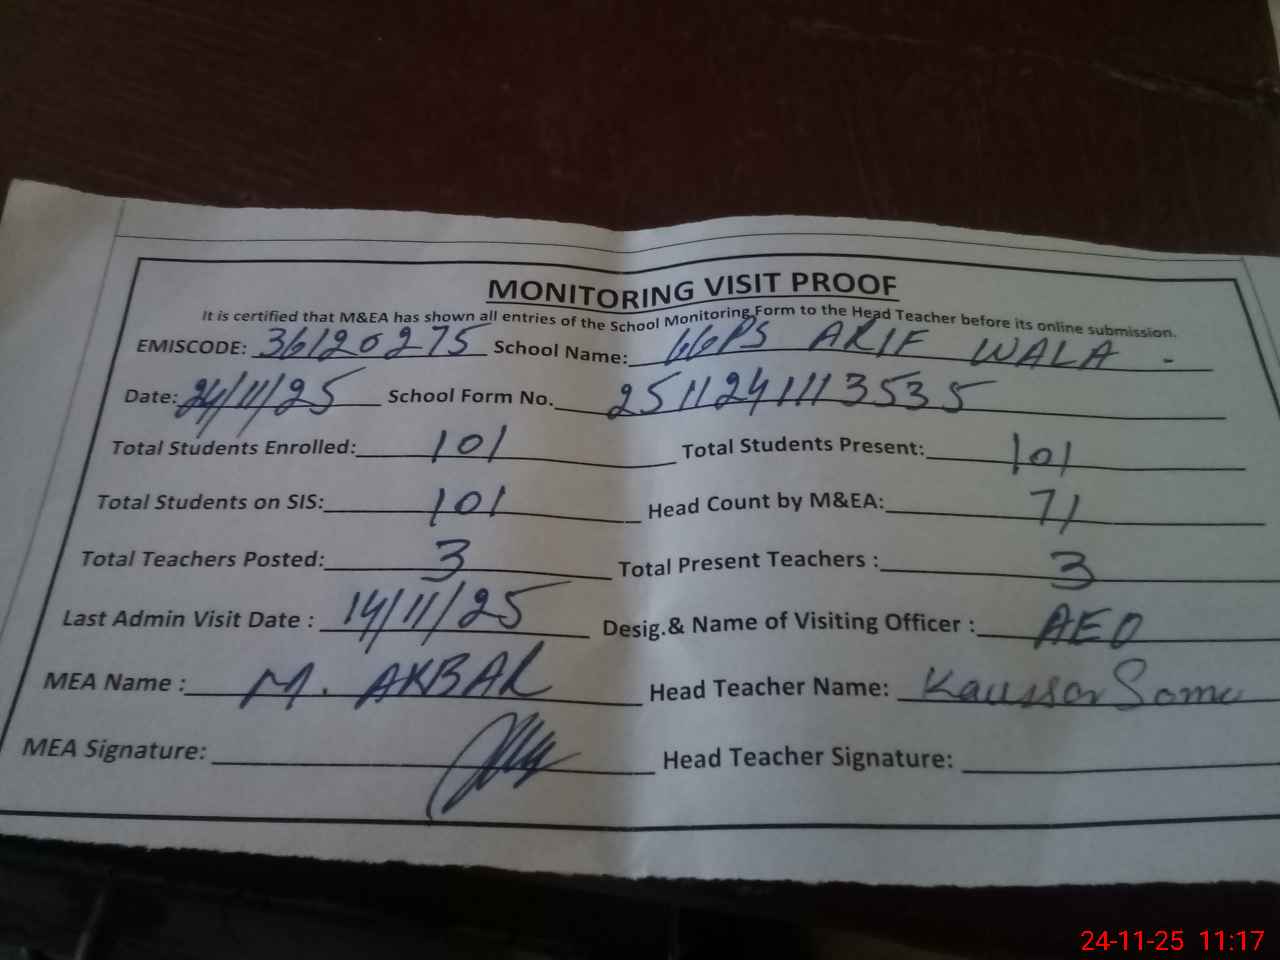 MONITORING VISIT PROOF
It is certified that M&EA has shown all entries of the School Monitoring Form to the Head Teacher before its online submission.
EMISCODE: 36120275 School Name: GGPS ARIF WALA -
Date: 24/11/25 School Form No. 25112411113535
Total Students Enrolled: 101 Total Students Present: 101
Total Students on SIS: 101 Head Count by M&EA: 71
Total Teachers Posted: 3 Total Present Teachers : 3
Last Admin Visit Date : 14/11/25 Desig.& Name of Visiting Officer : AEO
MEA Name : M. AKBAR Head Teacher Name: Kaussor
MEA Signature: Head Teacher Signature:
24-11-25 11:17